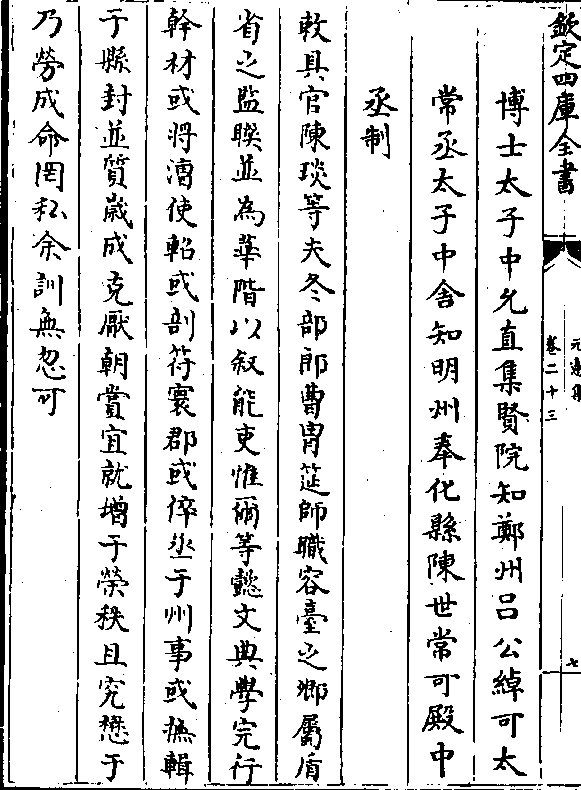 欽定四庫全書
元憲集
卷二十三
七
博士太子中允直集賢院知鄭州呂公綽可太
常丞太子中舍知明州奉化縣陳世常可殿中
丞制
敕具官陳琰等夫冬部郎曹冑筵師職容臺之鄉屬盾
省之監聨並為華階以叙能吏惟爾等懿文典學完行
幹材或將漕使軺或剖符寰郡或倅丞于州事或撫輯
于縣封並質歲成克厭朝賞宜就增于榮秩且究懋于
乃勞成命罔私余訓無忽可